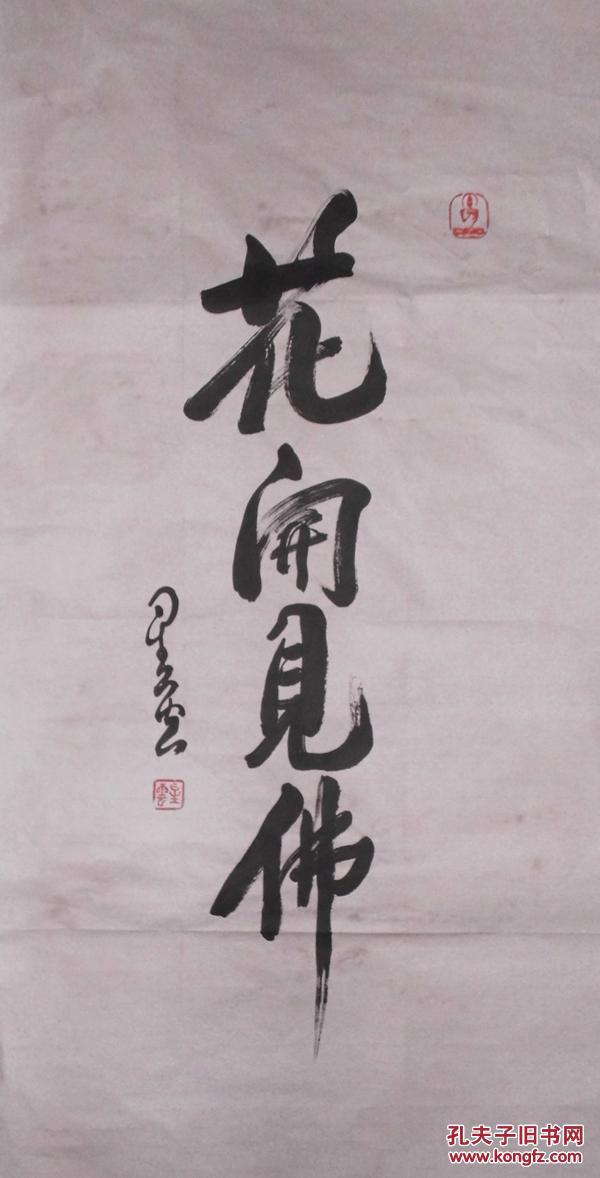 花開見佛
星雲
星雲
孔夫子旧书网
www.kongfz.com